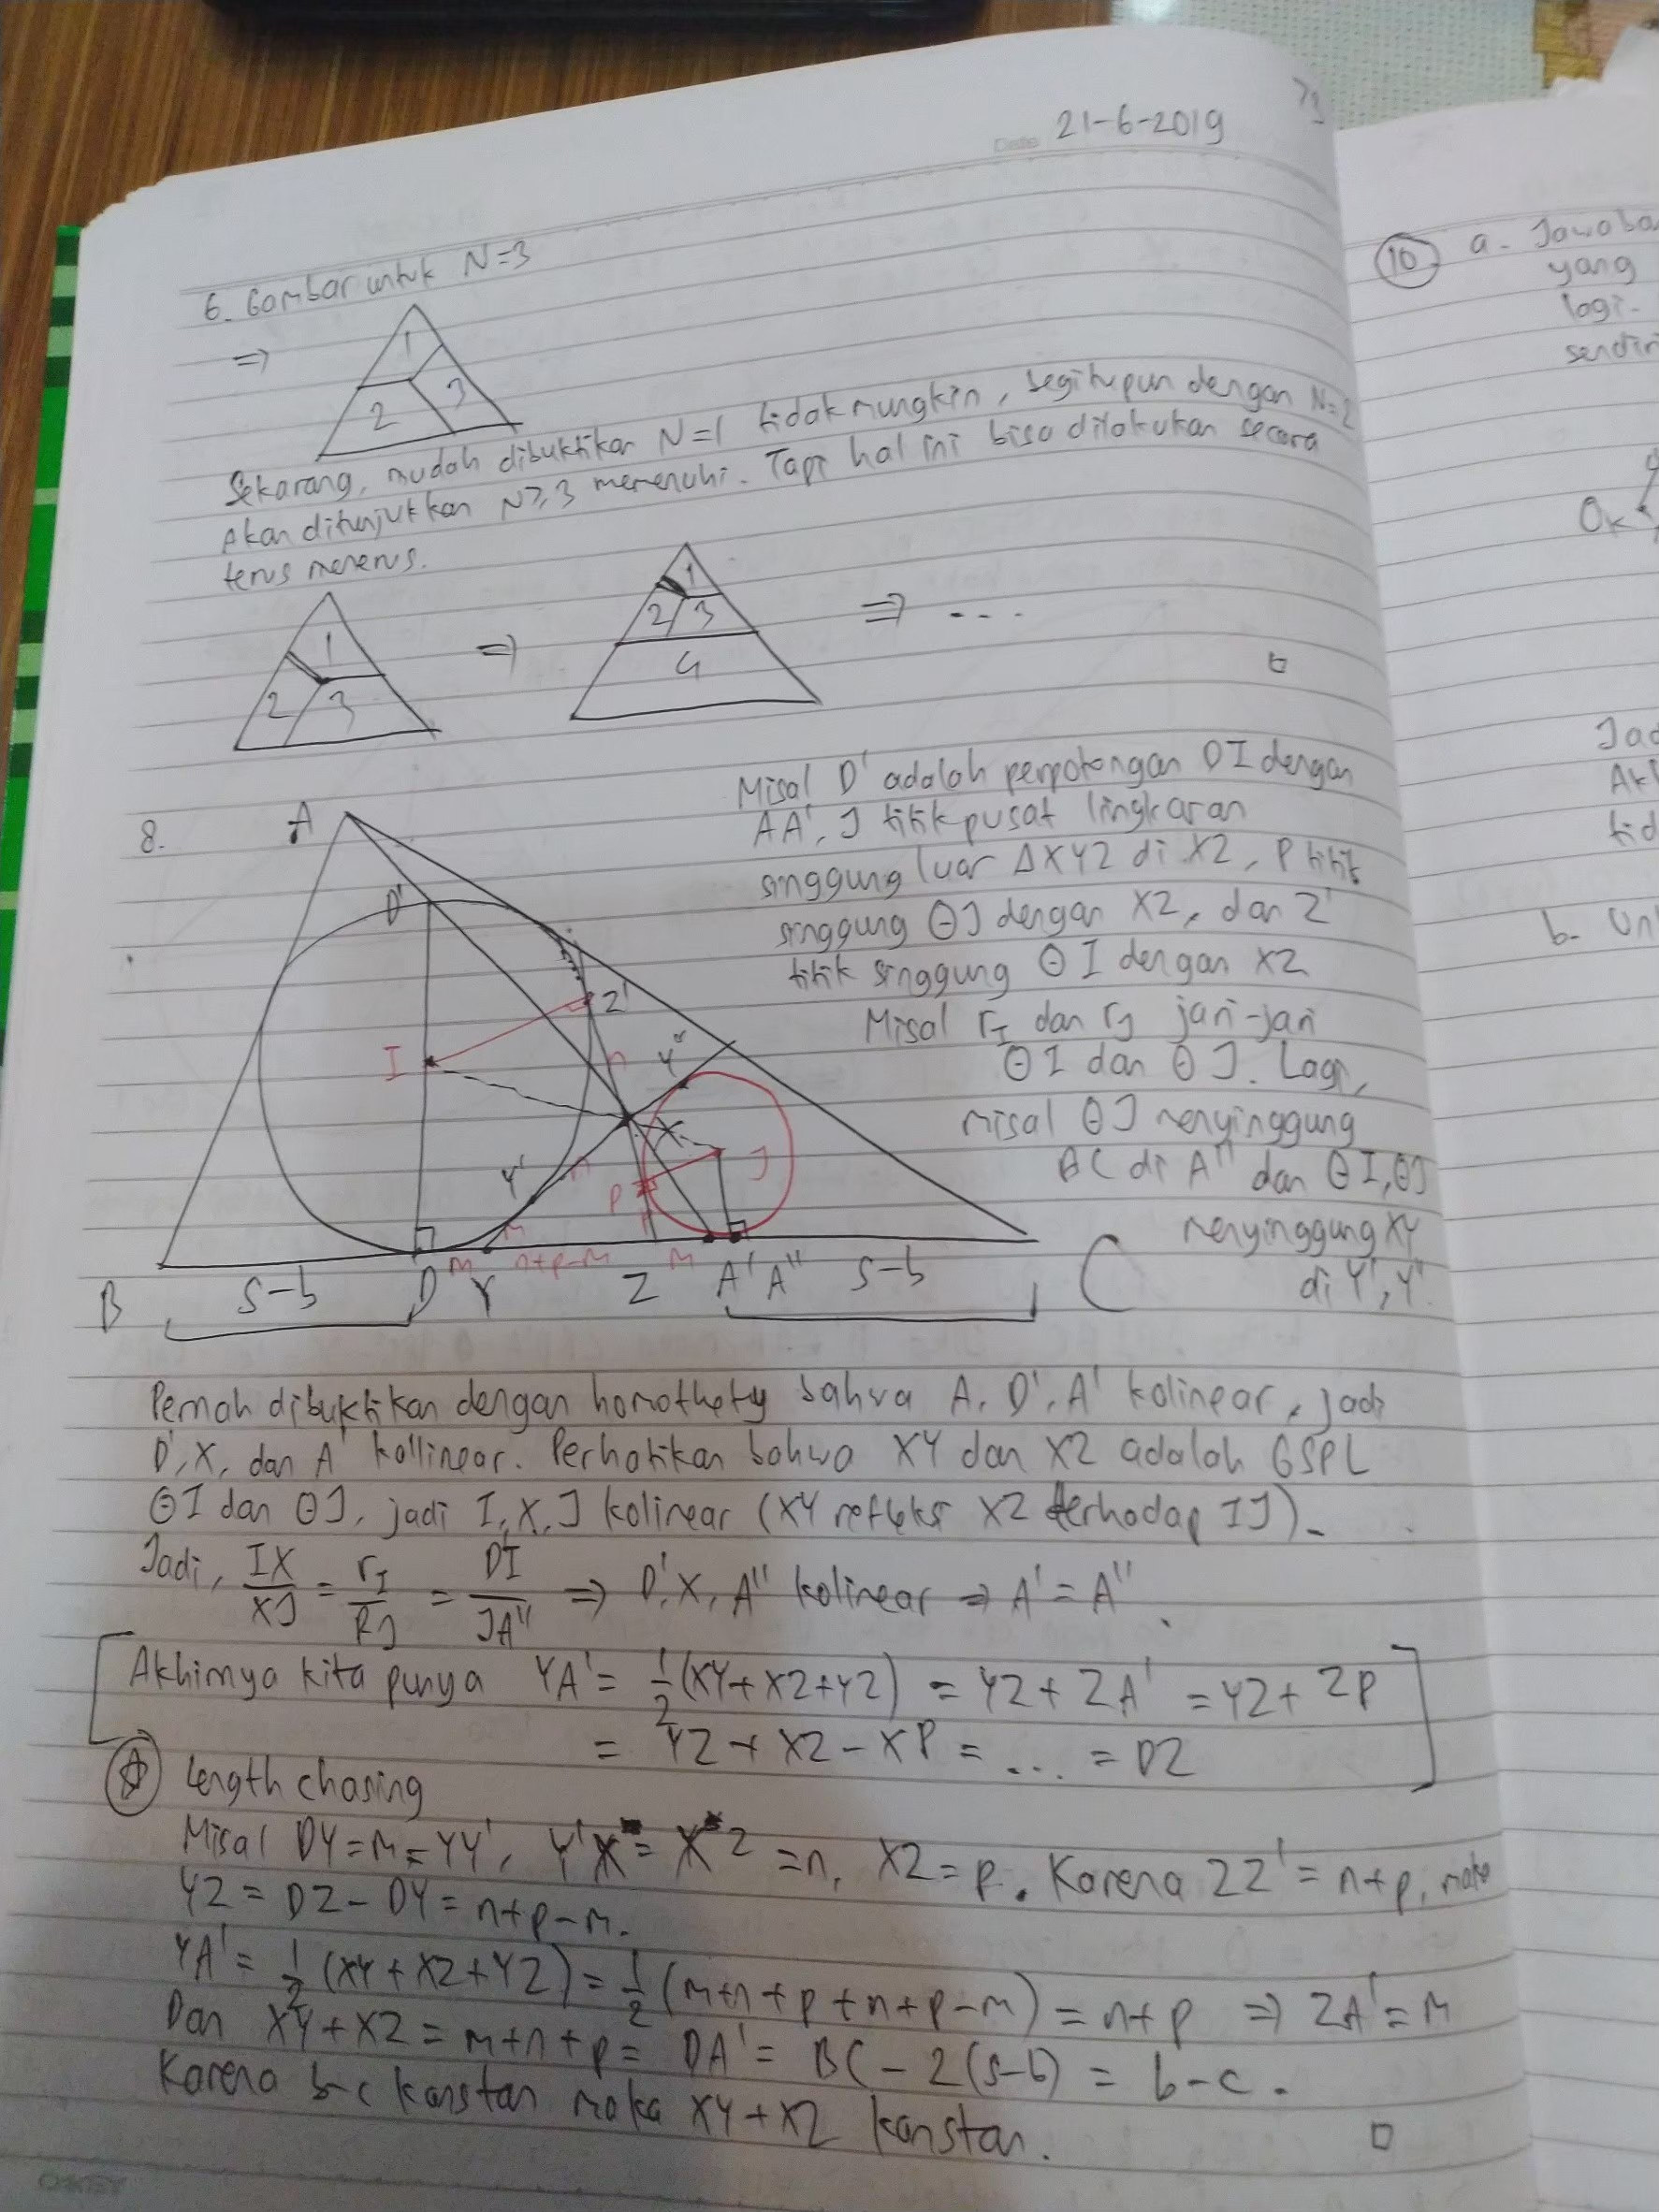 Date 21-6-2019
6. Gambar untuk N=3
⇒
1
2
3
Sekarang, mudah dibuktikan N=1 tidak mungkin, begitupun dengan N=2
Akan ditunjukkan N≥3 memenuhi. Tapi hal ini bisa dilakukan secara
terus menerus.
1
2 3
⇒
1
2 3
4
⇒ ....
□
8.
Misal D' adalah perpotongan DI dengan
AA', J titik pusat lingkaran
singgung luar ΔXYZ di XZ, P titik
singgung ΘJ dengan XZ, dan Z'
titik singgung Θ I dengan XZ
Misal r_I dan r_J jari-jari
Θ I dan Θ J. Lagi,
misal Θ J menyinggung
BC di A'' dan Θ I, ΘJ
menyinggung XY
di Y', Y''.
A
D'
Z'
I
n
Y''
X
J
Y'
n
P
P
m
m
n+p-m
m
B
s-b
D
Y
Z
A'
A''
s-b
C
Pernah dibuktikan dengan homothety bahwa A, D', A' kolinear, jadi
D', X, dan A' kollinear. Perhatikan bahwa XY dan XZ adalah GSPL
ΘI dan ΘJ, jadi I, X, J kolinear (XY refleksi XZ terhadap IJ).
Jadi, IX/XJ = r_I/R_J = DI/JA'' ⇒ D', X, A'' kolinear ⇒ A' = A''.
Akhirnya kita punya YA' = 1/2 (XY+XZ+YZ) = YZ + ZA' = YZ + ZP
= YZ + XZ - XP = ... = DZ
☆ Length chasing
Misal DY = m = YY', Y'X = XZ' = n, XZ = p. Karena ZZ' = n+p, maka
YZ = DZ - DY = n+p-m.
YA' = 1/2 (XY+XZ+YZ) = 1/2 (m+n+p+n+p-m) = n+p ⇒ ZA' = m
Dan XY + XZ = m+n+p = DA' = BC - 2(s-b) = b-c.
Karena b-c konstan maka XY + XZ konstan.
□
10 a. Jawaba
yang
lagi.
sendir
Ok
Jad
Ak
tid
b. Un
OKEY